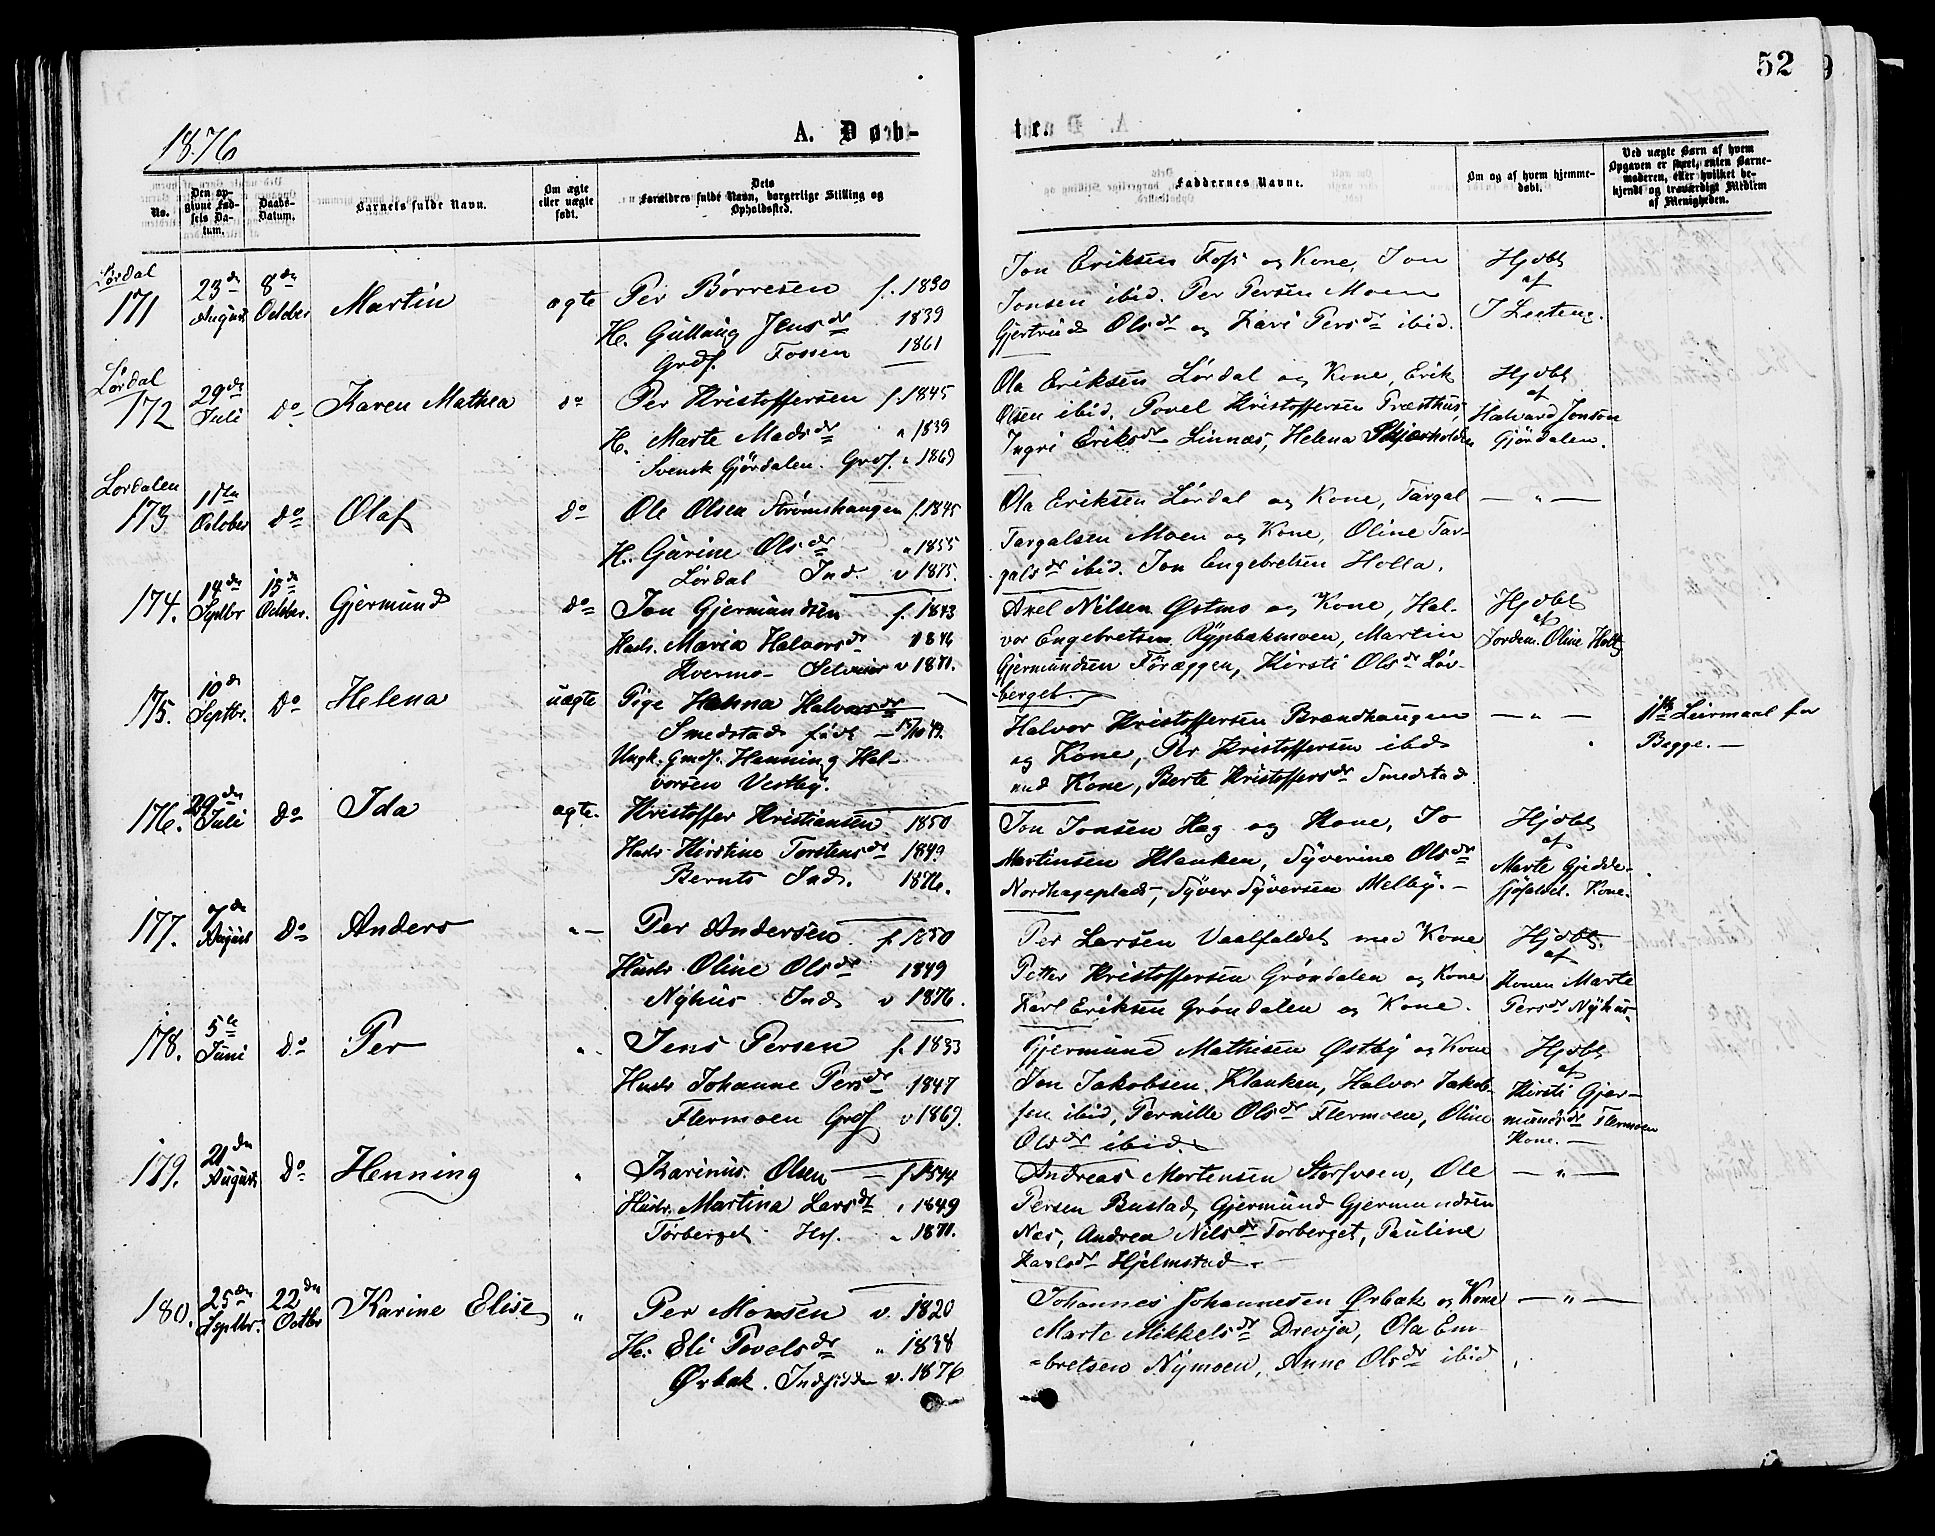 52
1876
A. Døb-
te.
No.
Den op-
givne Fød-
sels Da-
tum.
Daabs-
Datum.
Barnets fulde Navn.
Om ægte
eller uægte
født.
Dets
Forældres fulde Navn, borgerlige Stilling og
Opholdssted.
Faddernes Navne.
Om og af hvem hjemme-
døbt.
Ved uægte Børn af hvem
Opgaven er skeet, enten Barne-
moderen, eller hvilket be-
kjendt og troværdigt Medlem
af Menigheden.
Lørdal
171
23de
August
8de
October
Martin
ægte
Per Børresen f. 1830
H. Gullaug Jensdr 1839
Grdf. Fossen 1861
Jon Eriksen Foss og Kone, Jon
Jonsen ibid. Per Persen Moen
Gjertrud Olsdr og Kari Persdr ibid.
Hjdbt
af
Lørdal
172
29de
Juli
do
Karen Mathea
do
Per Kristoffersen f. 1845
H. Marte Madsdr " 1839
Svensk Gjördalen. Grdf. " 1869
Ola Eriksen Lørdal og Kone, Erik
Olsen ibid. Povel Kristoffersen Præsthus,
Ingri Eriksdr Linnæs, Helena Skjærholden
Hjdbt
af
Halvard Jonson
Gjördalen.
Lordalen
173
October
do
Olaf
do
Ole Olsen Strømshaugen f. 1845
H. Garine Olsdr " 1855
Lørdal Ind. v 1875.
Ola Eriksen Lørdal og Kone, Targal
Targalsen Moen og Kone, Oline Tar-
galsdr ibid. Jon Engebretsen Holla.
— " —
174.
14de
Septbr
15de
October.
Gjermund
do
Jon Gjermundsen f. 1843
Hustr. Maria Halvorsdr 1846
Kvermo - Selveier v 1871.
Axel Nilsen Østmo og Kone, Hal-
vor Engebretsen Rypbakmoen, Martin
Gjermundsen Föræggen, Kirsti Olsdr Löv-
berget.
Hjdbt
af
Jordem. Oline Holt
175.
10de
Septbr.
do
Helena
uægte
Pige Hanna Halvorsdr
Smedstad født — 15/10 49.
Ungk. Gmdf. Henning Hal-
vorsen Vestby.
Halvor Kristoffersen Brændhaugen
og Kone, Per Kristoffersen ibid
med Kone, Berte Kristoffersdr Smedstad
— " —
1ste Leiermaal for
Begge. —
176.
29de
Juli
do
Ida
ægte.
Kristoffer Kristiansen 1850
Hustr Kirstine Torstensdr 1849
Bernts Ind. 1876.
Jon Jonsen Hag og Kone, Jo
Martinsen Klanken, Syverine Olsdr
Nordhageplads, Syver Syversen Melby. —
Hjdbt
af
Marte Gjedde-
Kone.
177.
7de
August
do
Anders
" —
Per Andersen. f. 1850
Hustr Oline Olsdr 1849
Nyhus Ind v 1876.
Per Larsen Vaalfaldet med Kone
Petter Kristoffersen Gröndalen og Kone
Karl Eriksen Gröndalen og Kone.
Hjdbt.
af
Konen Marte
Persdr Nyhus
178.
5te
Juni
do
Per
"
Jens Persen f. 1833
Hustr Johanne Persdr 1847
Flermoen Grdf v 1869.
Gjermund Mathisen Østby og Kone
Jon Jakobsen Klanken, Halvor Jakob-
sen ibid, Pernille Olsdr Flermoen, Oline
Olsdr ibid.
Hjdbt
af
Kirsti Gjer-
mundsdr Flermoen
Kone. —
179.
21de
August
do
Henning
"
Karinus Olsen — f. 1844
Hustr. Martina Larsdr " 1849
Torberget Hsf. " 1871.
Andreas Mortensen Storfveen, Ole
Persen Bustad, Gjermund Gjermundsen
Næs, Andrea Nilsdr Torberget, Pauline
Karlsdr Hjelmstad.
— " —
180.
25de
Septbr.
22de
Octbr
Karine Elise
"
Per Monsen v. 1820
H. Eli Povelsdr " 1838
Ørbak. Indsidder v. 1876
Johannes Johannesen Ørbak og Kone
Marte Mikkelsdr Drevja, Ola Em-
bretsen Nymoen, Anne Olsdr ibid
— " —